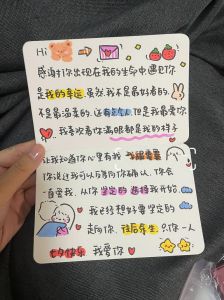 Hi
感谢你出现在我的生命中 遇见你
是我的幸运 虽然我不是最好看的,
不是最温柔的 还有点 但是我最爱你
我喜欢看你满眼都是我的样子
让我知道你心里有我
你说过我可以多问你确认,你会
一直爱我,从你坚定的选择我开始
我已经想好要坚定的
走向你,往后余生,只你一人
七夕快乐 我爱你